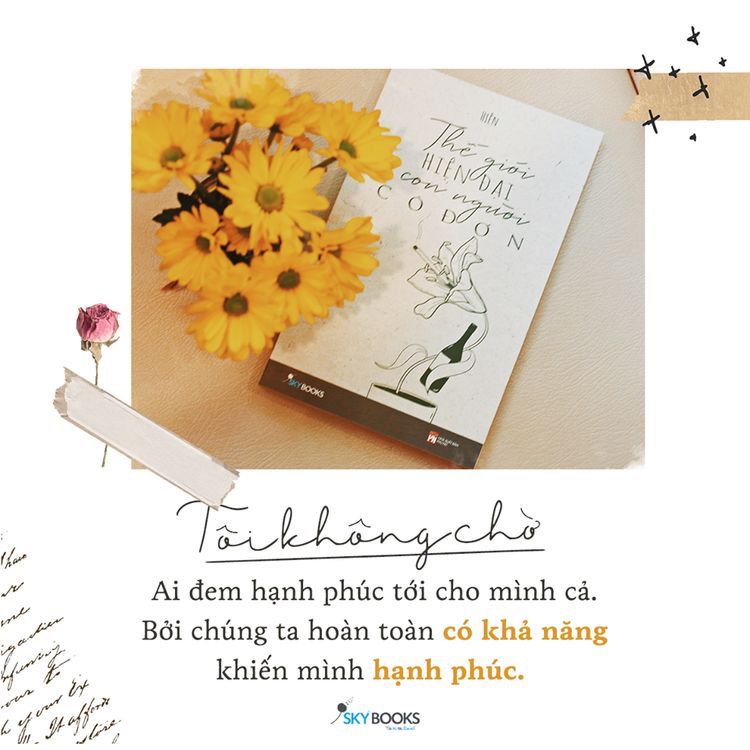 HIÊN
Thế giới
HIỆN ĐẠI
con người
CÔ ĐƠN
SKYBOOKS
Tôi không chờ
Ai đem hạnh phúc tới cho mình cả.
Bởi chúng ta hoàn toàn có khả năng
khiến mình hạnh phúc.
our to
of your Ex
It affords
SKYBOOKS